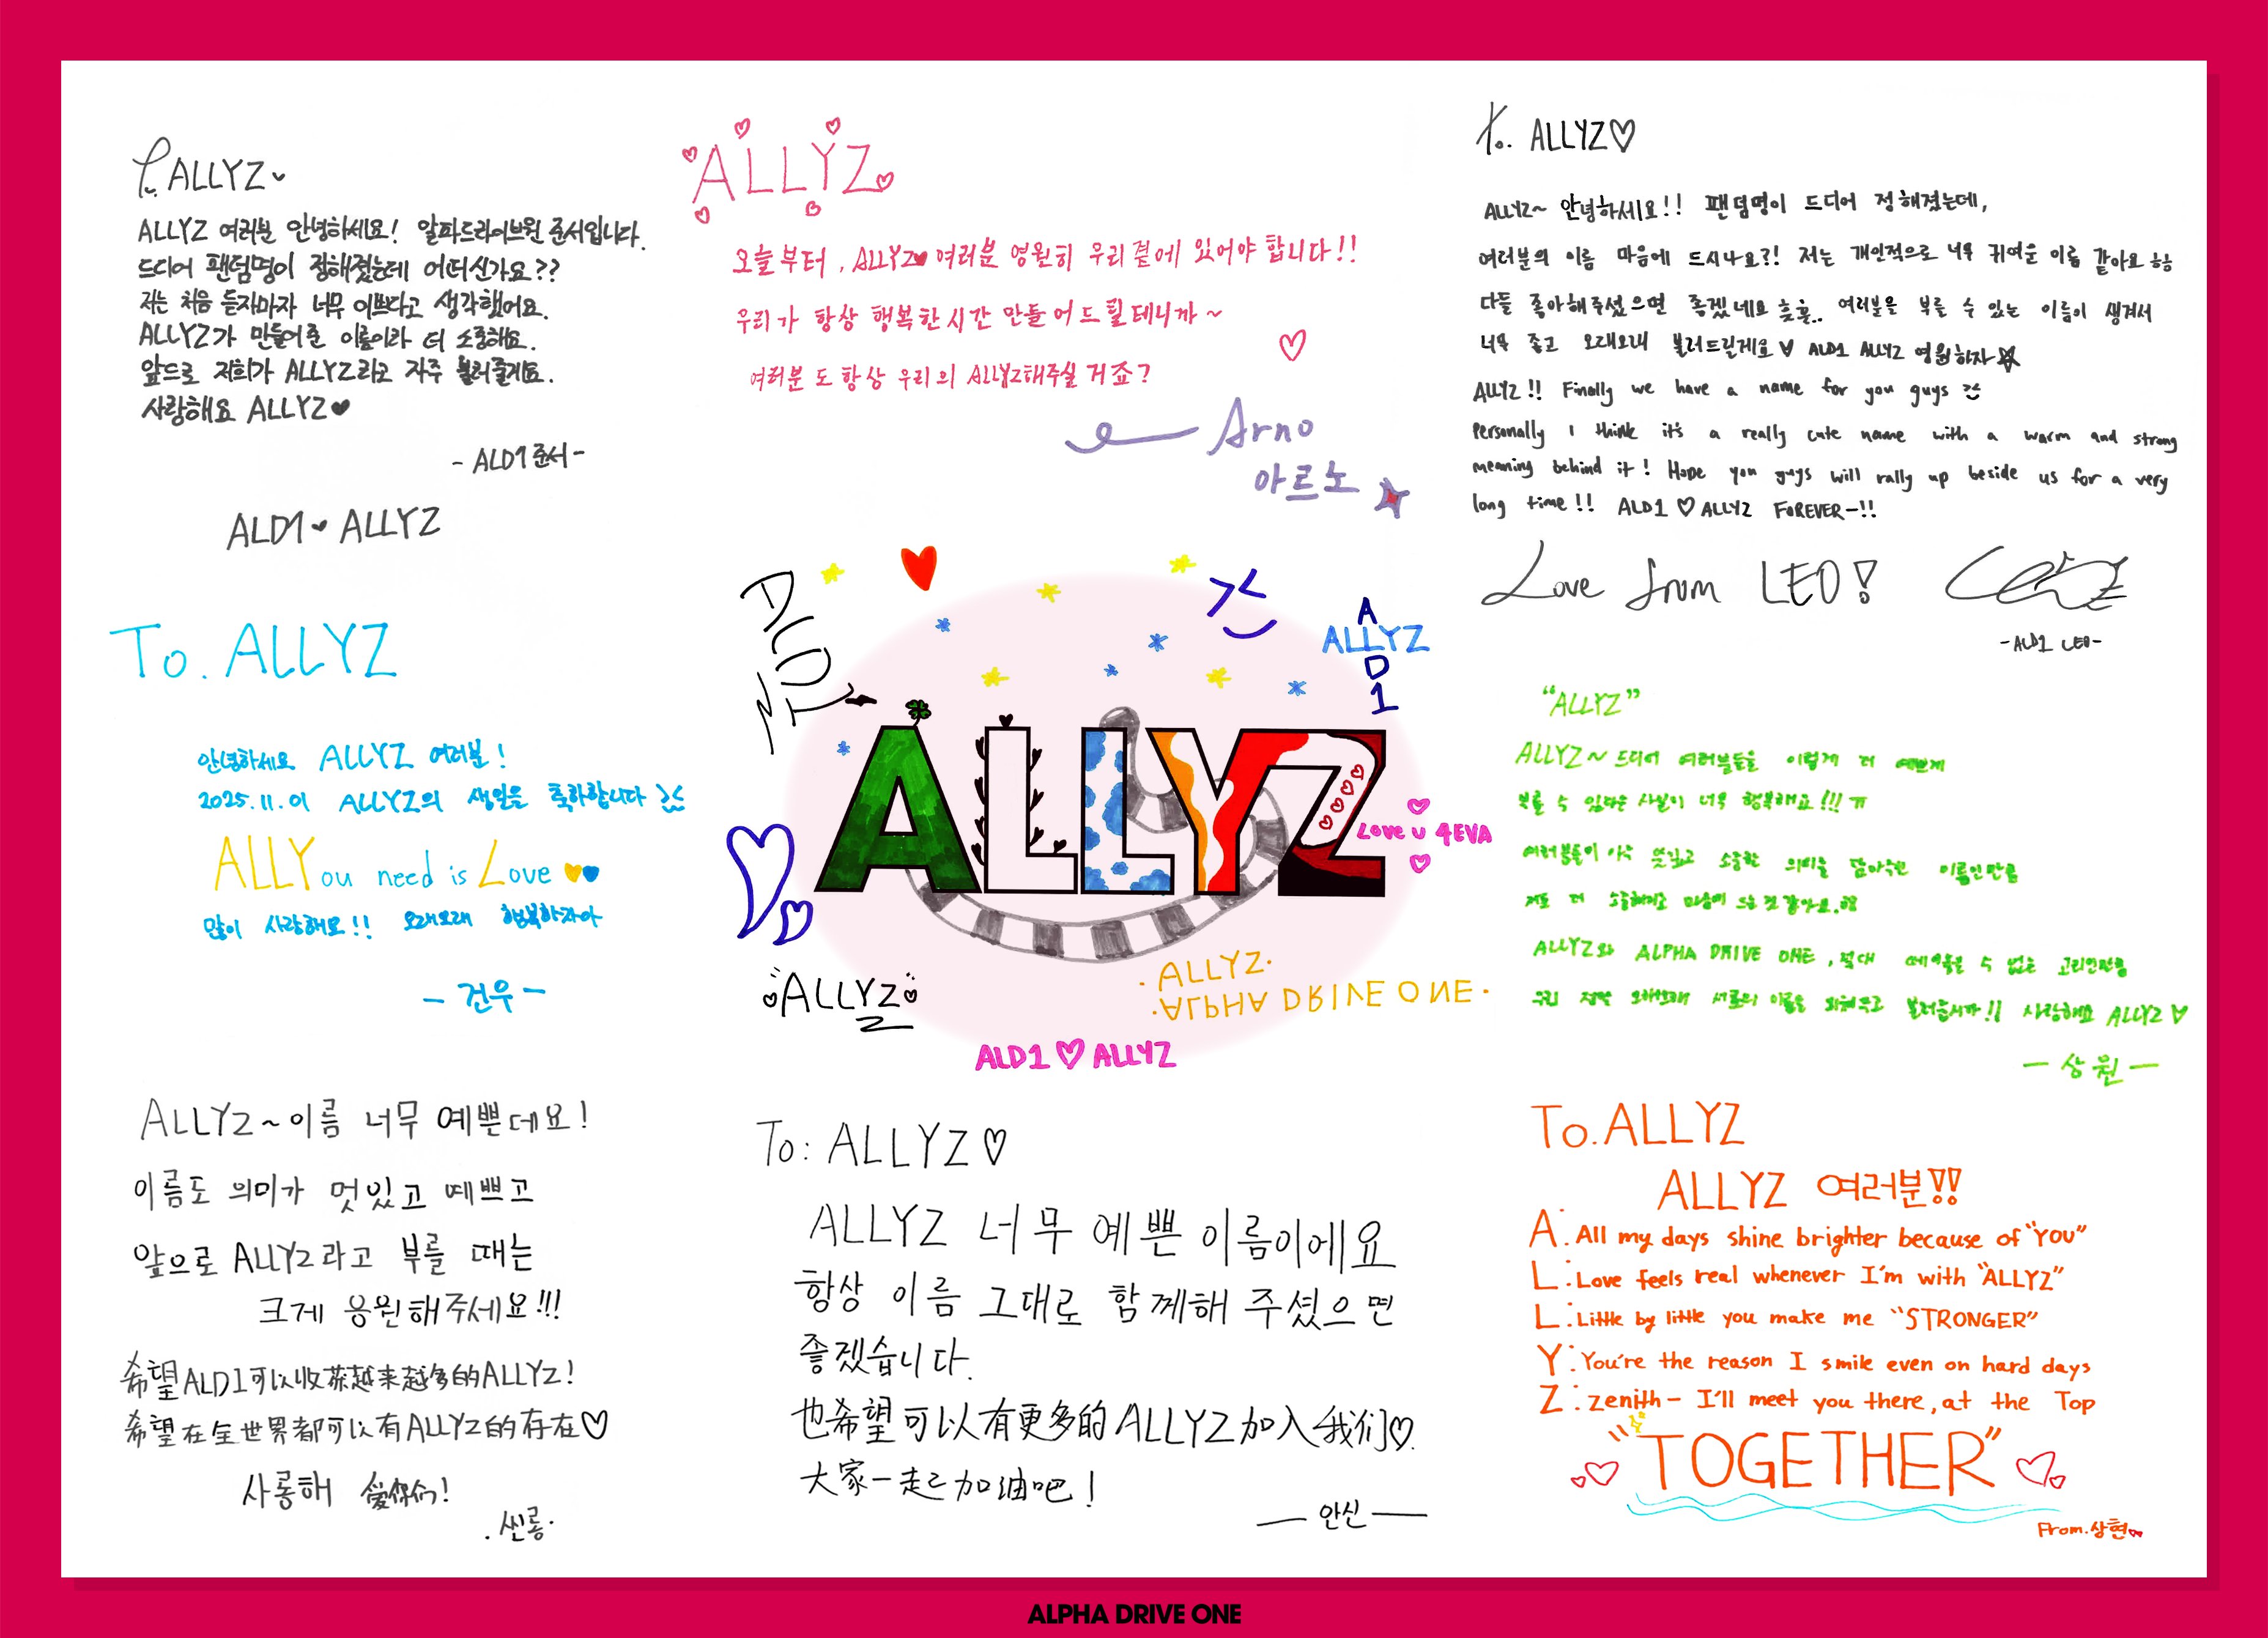 To. ALLYZ
ALLYZ 여러분 안녕하세요! 알파드라이브원 준서입니다.
드디어 팬덤명이 정해졌는데 어떠신가요??
저는 처음 듣자마자 너무 이쁘다고 생각했어요.
ALLYZ가 만들어준 이름이라 더 소중해요.
앞으로 저희가 ALLYZ라고 자주 불러줄게요.
사랑해요 ALLYZ♥
- ALD1 준서 -
ALD1 ♥ ALLYZ
ALLYZ
오늘부터, ALLYZ♥ 여러분 영원히 우리 곁에 있어야 합니다!!
우리가 항상 행복한 시간 만들어 드릴테니까~
여러분도 항상 우리의 ALLYZ해주실 거죠?
Arno
아르노
To. ALLYZ♡
ALLYZ~ 안녕하세요!! 팬덤명이 드디어 정해졌는데,
여러분의 이름 마음에 드시나요?! 저는 개인적으로 너무 귀여운 이름 같아요 ㅎㅎ
다들 좋아해주셨으면 좋겠네요 훗훗.. 여러분을 부를 수 있는 이름이 생겨서
너무 좋고 오래오래 불러드릴게요♥ ALD1 ALLYZ 영원하자☆
ALLYZ!! Finally we have a name for you guys
Personally I think it's a really cute name with a warm and strong
meaning behind it! Hope you guys will rally up beside us for a very
long time!! ALD1 ♡ ALLYZ FOREVER-!!
Love from LEO!
-ALD1 LEO-
To. ALLYZ
안녕하세요 ALLYZ 여러분!
2025.11.01 ALLYZ의 생일을 축하합니다
ALLYou need is Love
많이 사랑해요!! 오래오래 행복하자아
- 건우 -
ALD1
A
ALLYZ
D
1
ALLYZ
Love u 4EVA
ALLYZ
·ALLYZ·
·ALPHA DRIVE ONE·
ALD1 ♡ ALLYZ
"ALLYZ"
ALLYZ~ 드디어 여러분들을 이렇게 더 예쁘게
부를 수 있다는 사실이 너무 행복해요!!! ㅠ
여러분들이 아주 뜻깊고 소중한 의미을 담아주신 이름인만큼
저도 더 소중하게 마음이 드는 것 같아요.
ALLYZ와 ALPHA DRIVE ONE, 절대 떼어놓을 수 없는 고리인만큼
우리 정말 오래오래 서로의 이름을 외쳐주고 불러줍시다!! 사랑해요 ALLYZ♡
- 상원 -
ALLYZ~ 이름 너무 예쁜데요!
이름도 의미가 멋있고 예쁘고
앞으로 ALLYZ라고 부를 때는
크게 응원해주세요!!!
希望ALD1可以收获越来越多的ALLYZ!
希望在全世界都可以有ALLYZ的存在♡
사롱해 爱你们!
·씬롱·
To: ALLYZ♡
ALLYZ 너무 예쁜 이름이에요
항상 이름 그대로 함께해 주셨으면
좋겠습니다.
也希望可以有更多的ALLYZ加入我们♡.
大家一起加油吧!
— 안신 —
To. ALLYZ
ALLYZ 여러분!!
A: All my days shine brighter because of "YOU"
L: Love feels real whenever I'm with "ALLYZ"
L: Little by little you make me "STRONGER"
Y: You're the reason I smile even on hard days
Z: zenith- I'll meet you there, at the Top
"TOGETHER"
From.상현
ALPHA DRIVE ONE